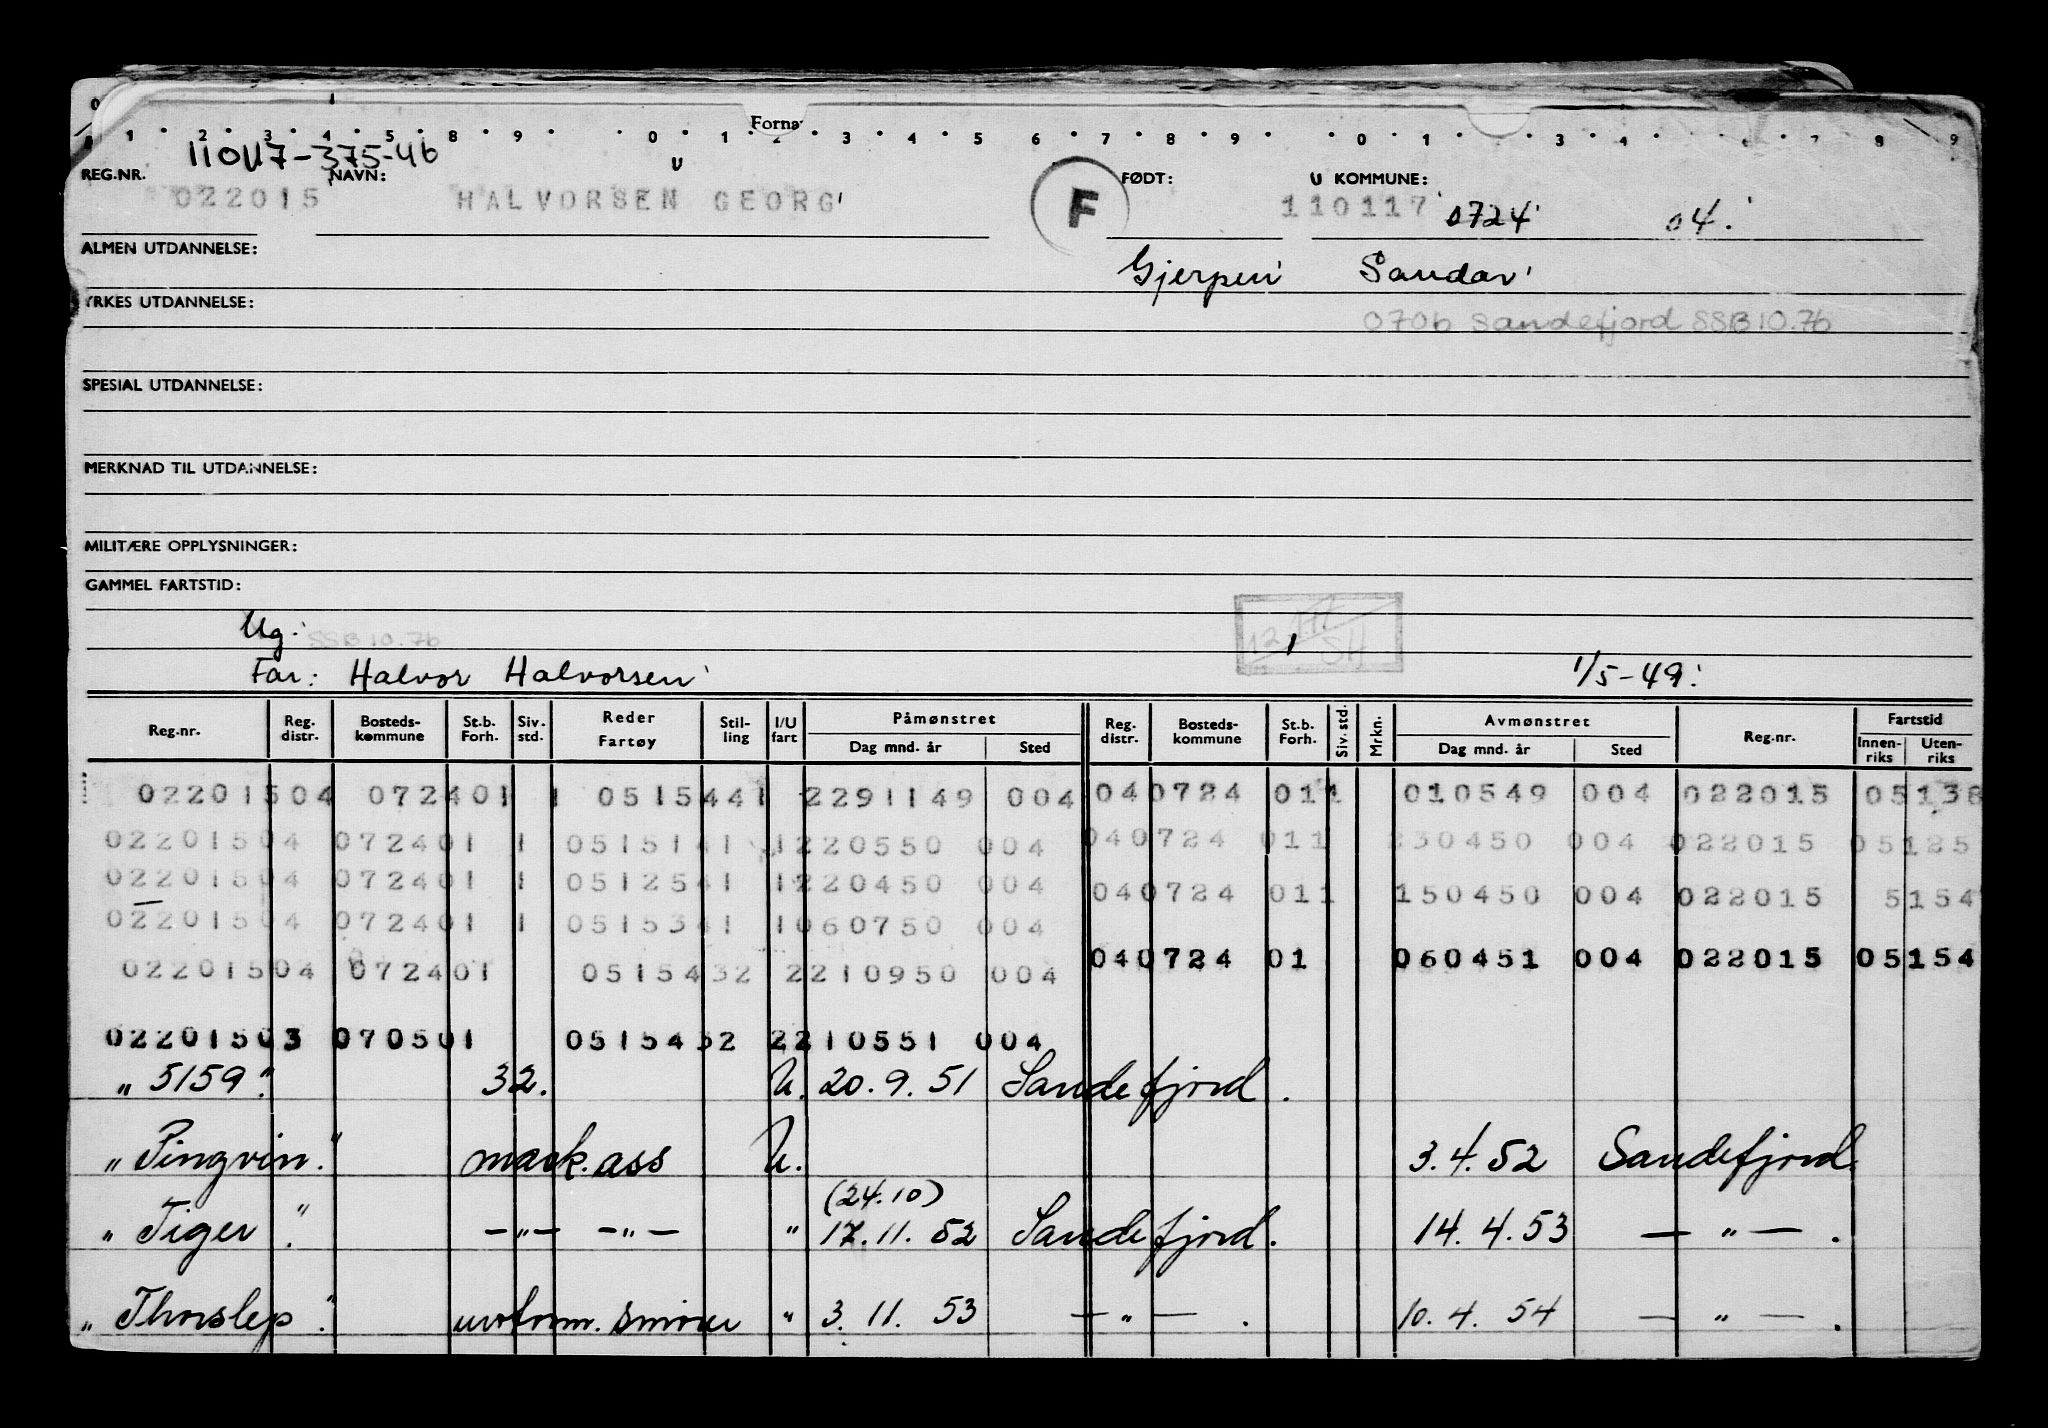 Forna
1 2 3 4 5 8 9 0 1 2 3 4 5 6 7 8 9 0 1 3 4 7 8 9
110117-375-46 U
REG.NR. NAVN: FØDT: U KOMMUNE:
022015 HALVORSEN GEORG F 110117 0724 04.
ALMEN UTDANNELSE: Gjerpen Sandar
YRKES UTDANNELSE:
0706 Sandefjord SSB 10.76
SPESIAL UTDANNELSE:
MERKNAD TIL UTDANNELSE:
MILITÆRE OPPLYSNINGER:
GAMMEL FARTSTID:
Ug. SSB 10.76
Far: Halvor Halvorsen 1/5-49.
Reg.nr. Reg. distr. Bosteds-kommune St.b. Forh. Siv. std. Reder Fartøy Stil-ling I/U fart Påmønstret Dag mnd. år Sted Reg. distr. Bosteds-kommune St.b. Forh. Siv. std. Mrkn. Avmønstret Dag mnd. år Sted Reg.nr. Fartstid Innen-riks Uten-riks
02201504 072401 1 0515441 2291149 004 040724 011 010549 004 022015 05138
02201504 072401 1 0515141 1220550 004 040724 011 230450 004 022015 05125
02201504 072401 1 0512541 1220450 004 040724 011 150450 004 022015 5154
02201504 072401 1 0515341 1060750 004
040724 01 060451 004 022015 05154
02201504 072401 0515432 2210950 004
02201503 070501 0515432 2210551 004
„5159" 32. U. 20.9.51 Sandefjord.
„Pingvin." mask.ass U. 3.4.52 Sandefjord.
(24.10)
„Tiger." —„— —„— " 17.11.52 Sandefjord. 14.4.53 —„—.
„Thorslep." smører " 3.11.53 —„—. 10.4.54 —„—.